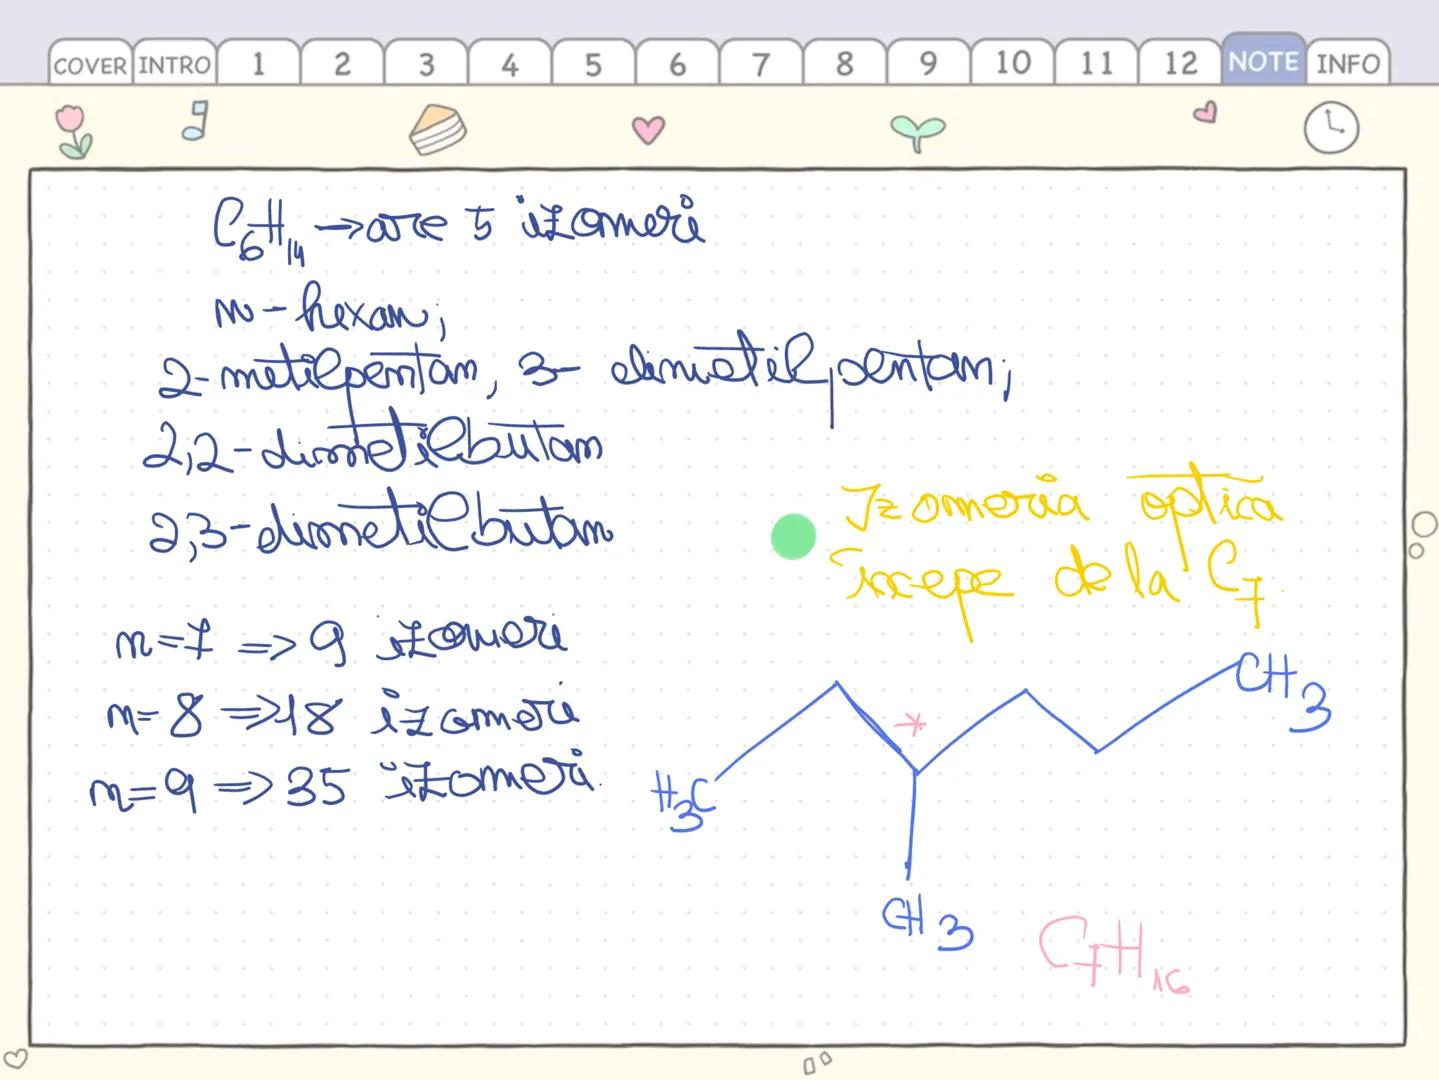 COVER INTRO 1 2 3 4 5 6 7 8 9 10 11 12 NOTE INFO
C₆H₁₄ → are 5 izomeri
n-hexan;
2-metilpentan, 3-dimetilpentan;
2,2-dimetilbutan
2,3-dimetilbutan
n=7 => 9 izomeri
n=8 => 18 izomeri
n=9 => 35 izomeri.
Izomeria optica
începe de la C₇
*
CH₃
H₃C
CH₃
C₇H₁₆